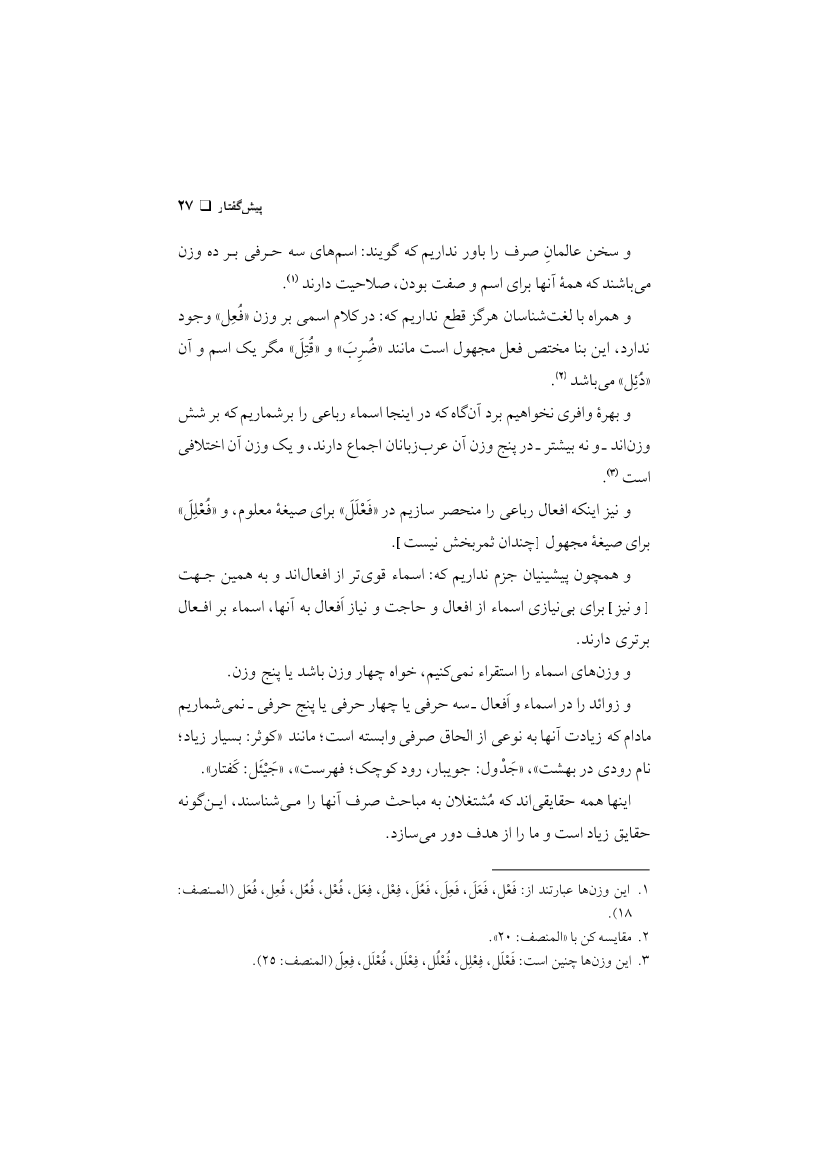 پیش‌گفتار ❑ ۲۷
و سخن عالمانِ صرف را باور نداریم که گویند: اسم‌های سه حرفی بر ده وزن
می‌باشند که همهٔ آنها برای اسم و صفت بودن، صلاحیت دارند (۱).
و همراه با لغت‌شناسان هرگز قطع نداریم که: در کلام اسمی بر وزن «فُعِل» وجود
ندارد، این بنا مختص فعل مجهول است مانند «ضُرِبَ» و «قُتِلَ» مگر یک اسم و آن
«دُئِل» می‌باشد (۲).
و بهرهٔ وافری نخواهیم برد آن‌گاه که در اینجا اسماء رباعی را برشماریم که بر شش
وزن‌اند ـ و نه بیشتر ـ در پنج وزن آن عرب‌زبانان اجماع دارند، و یک وزن آن اختلافی
است (۳).
و نیز اینکه افعال رباعی را منحصر سازیم در «فَعْلَلَ» برای صیغهٔ معلوم، و «فُعْلِلَ»
برای صیغهٔ مجهول [چندان ثمربخش نیست].
و همچون پیشینیان جزم نداریم که: اسماء قوی‌تر از افعال‌اند و به همین جهت
[و نیز] برای بی‌نیازی اسماء از افعال و حاجت و نیاز اَفعال به آنها، اسماء بر افعال
برتری دارند.
و وزن‌های اسماء را استقراء نمی‌کنیم، خواه چهار وزن باشد یا پنج وزن.
و زوائد را در اسماء و اَفعال ـ سه حرفی یا چهار حرفی یا پنج حرفی ـ نمی‌شماریم
مادام که زیادت آنها به نوعی از الحاق صرفی وابسته است؛ مانند «کوثر: بسیار زیاد؛
نام رودی در بهشت»، «جَدْول: جویبار، رود کوچک؛ فهرست»، «جَیْئَل: کَفتار».
اینها همه حقایقی‌اند که مُشتغلان به مباحث صرف آنها را می‌شناسند، این‌گونه
حقایق زیاد است و ما را از هدف دور می‌سازد.
۱. این وزن‌ها عبارتند از: فَعْل، فَعَلَ، فَعِلَ، فَعُلَ، فِعْل، فِعَل، فُعْل، فُعُل، فُعِل، فُعَل (المنصف:
۱۸).
۲. مقایسه کن با «المنصف: ۲۰».
۳. این وزن‌ها چنین است: فَعْلَل، فِعْلِل، فُعْلُل، فِعْلَل، فُعْلَل، فِعِلّ (المنصف: ۲۵).